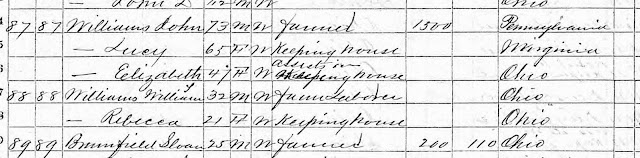 John L 12 M W Ohio
87 87 Williams John 73 M W Farmer 1500 Pennsylvania
— Lucy 65 F W Keeping house Virginia
— Elizabeth 47 F W assists in Keeping house Ohio
88 88 Williams William 32 M W Farm Laborer Ohio
— Rebecca 21 F W Keeping house Ohio
89 89 Brumfield Sloan 25 M W Farmer 200 110 Ohio